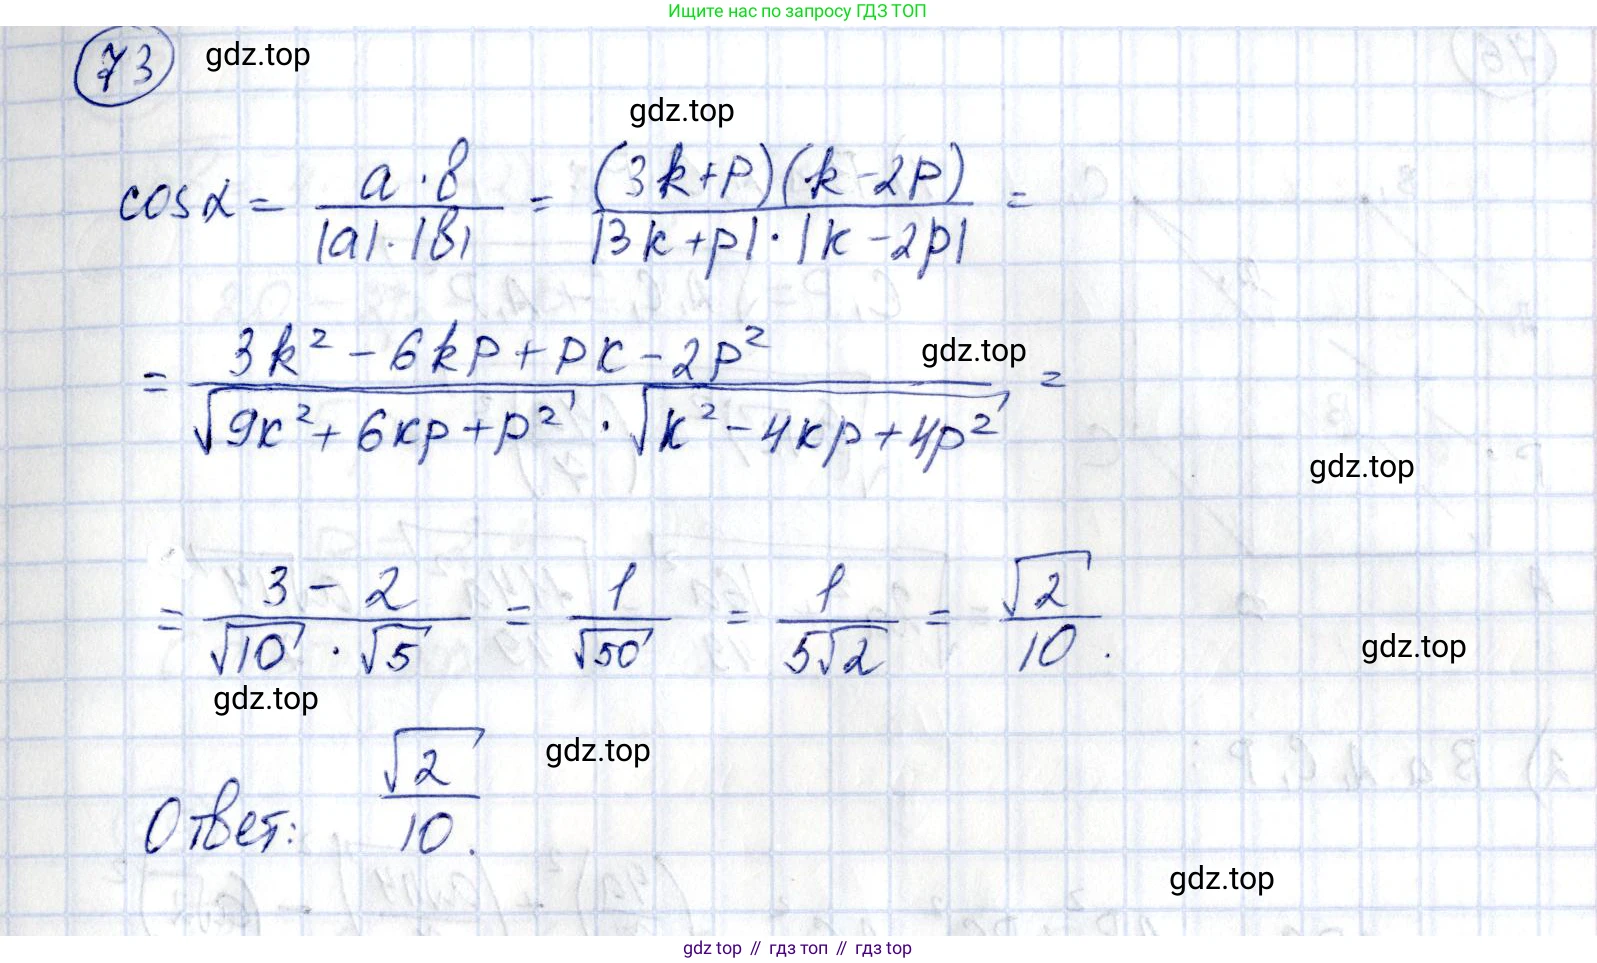 Ищите нас по запросу ГДЗ ТОП
73 gdz.top
gdz.top
cos α = a · b / |a| · |b| = (3k + p)(k - 2p) / |3k + p| · |k - 2p| =
= 3k² - 6kp + pk - 2p² / √(9k² + 6kp + p²) · √(k² - 4kp + 4p²) =
gdz.top
gdz.top
= 3 - 2 / √10 · √5 = 1 / √50 = 1 / 5√2 = √2 / 10.
gdz.top
gdz.top
gdz.top
Ответ: √2 / 10.
gdz.top
gdz.top // гдз топ // гдз top